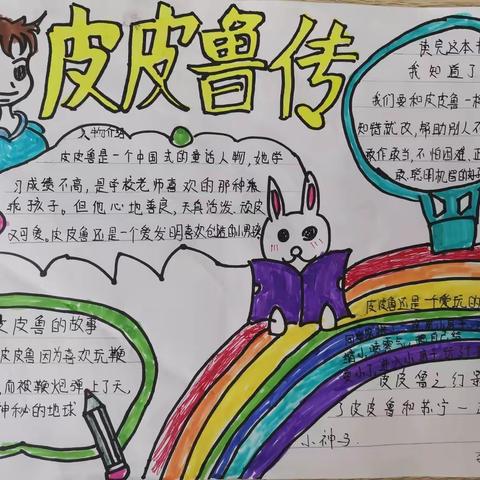 皮皮鲁传
人物介绍
皮皮鲁是一个中国式的童话人物,她学
习成绩不高,是学校老师喜欢的那种乖
乖孩子。但他心地善良,天真活泼、顽皮
又可爱。皮皮鲁还是一个爱发明喜欢创造由小男孩
读完这本书
我知道了
我们要和皮皮鲁一样
知错就改,帮助别人不
敢作敢当,不怕困难,正
敢,聪明机智的好
皮皮鲁的故事
皮皮鲁因为喜欢玩鞭
向被鞭炮弹上了天,
神秘的地球
皮皮鲁还是一个爱玩的
皮皮鲁之幻影
了皮皮鲁和苏宁一
小神子